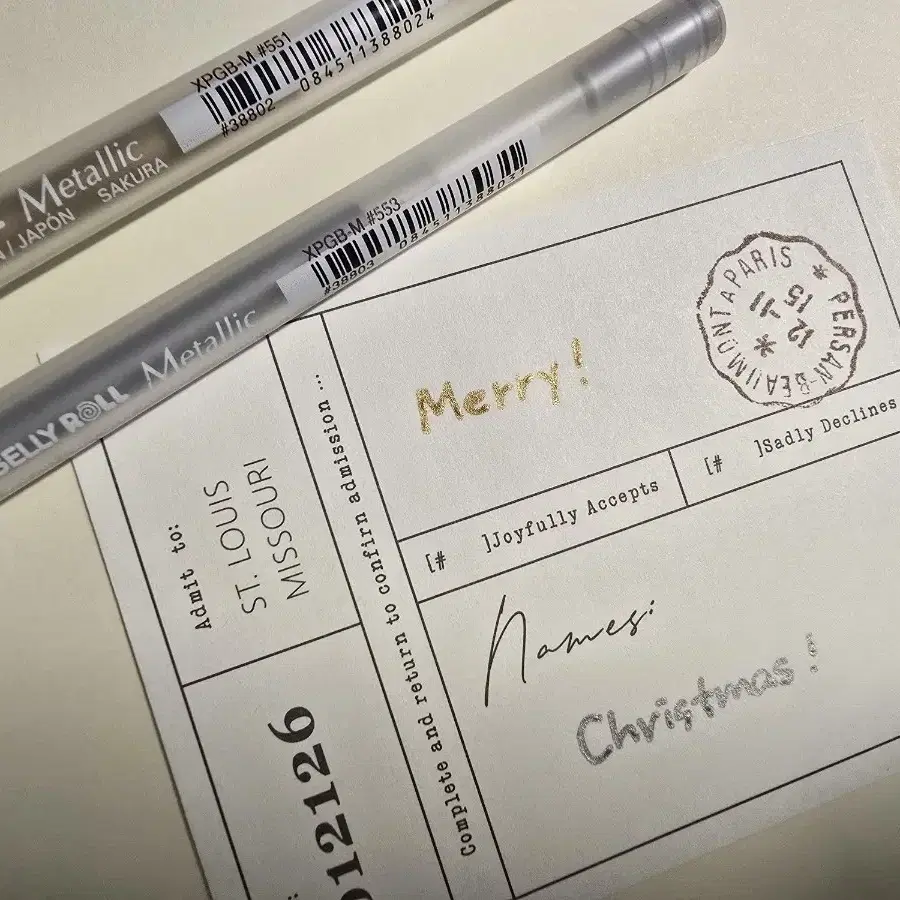 XPGB-M #551
#38802 084511388024
Metallic
JAPÓN SAKURA
XPGB-M #553
#38803 084511388031
GELLY ROLL Metallic
PERSAN-BEAUMONT A PARIS
12 11
15
Merry!
[# ]Joyfully Accepts
[# ]Sadly Declines
Names:
Christmas!
Complete and return to confirn admission ...
Admit to:
ST. LOUIS
MISSOURI
12126